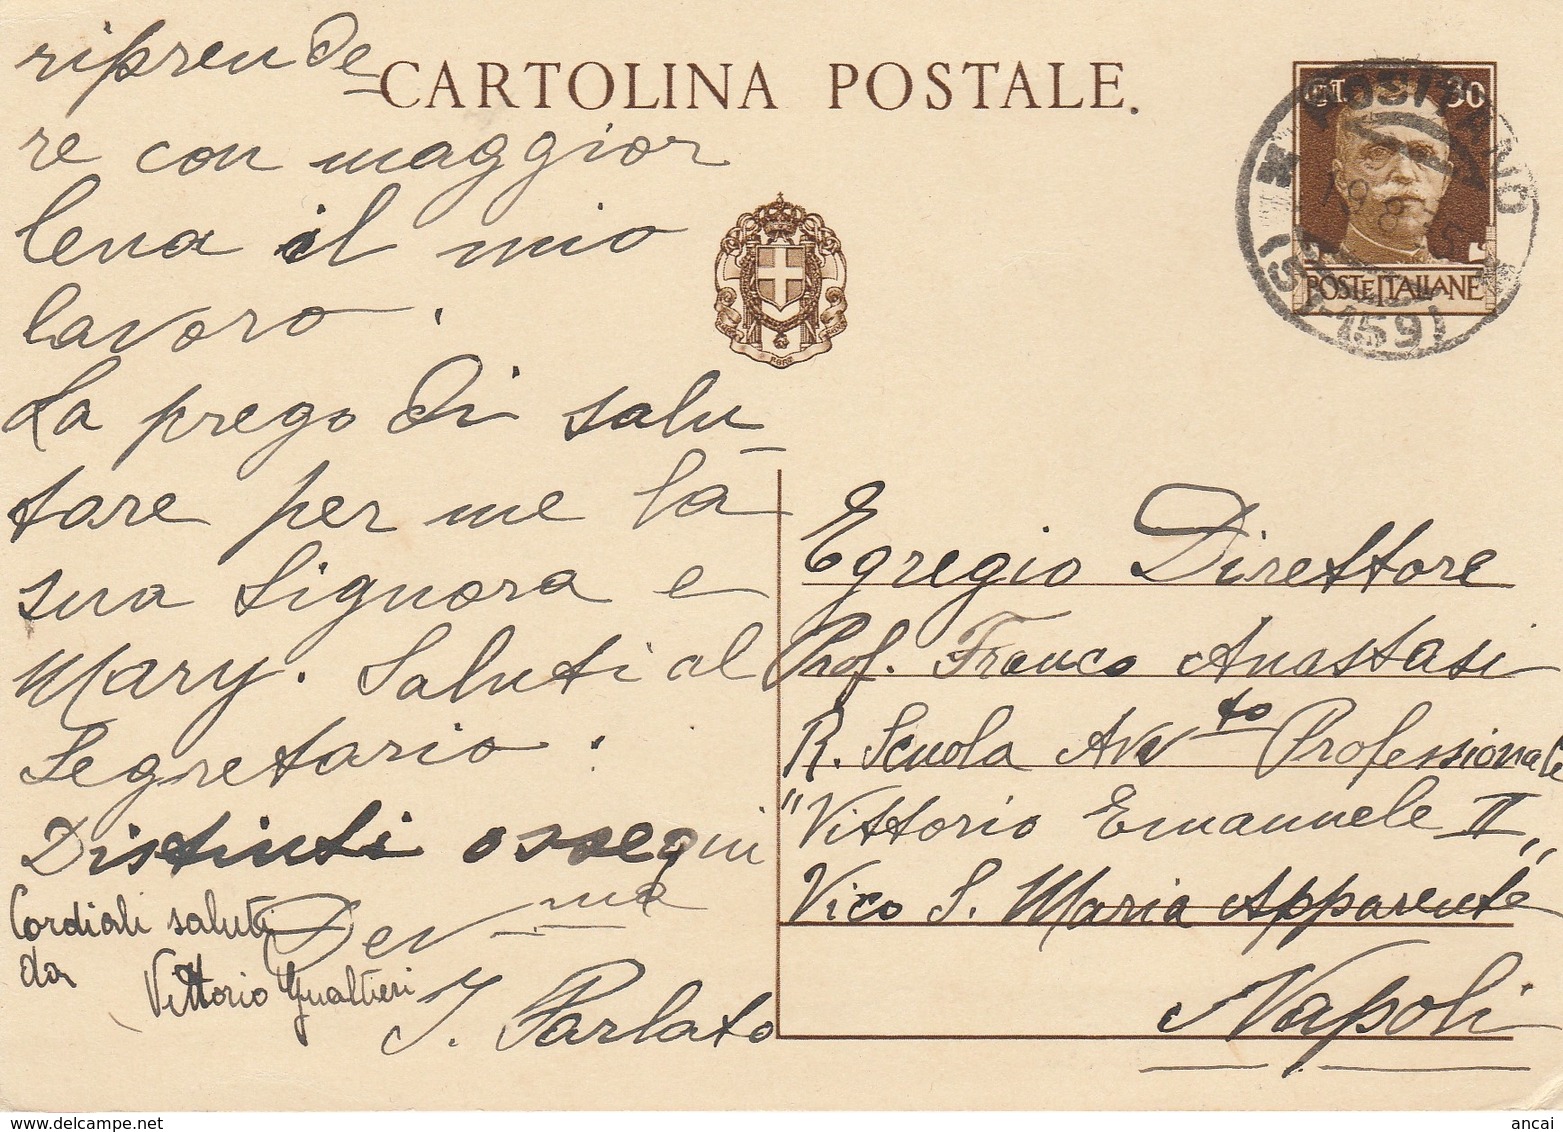 CARTOLINA POSTALE.
CT. 30
POSTE ITALIANE
POSITANO
19 8
(57-159)
FERT
riprende
re con maggior
lena il mio
lavoro.
La prego di salu-
tare per me la
sua Signora e
Mary. Saluti al
Segretario.
Distinti ossequi
Dev ma
I. Parlato
Cordiali saluti
da
Vittorio Gualtieri
Egregio Direttore
Prof. Franco Anastasi
R. Scuola Avvto Professionale
"Vittorio Emanuele II"
Vico S. Maria Apparente
Napoli
www.delcampe.net
ancai